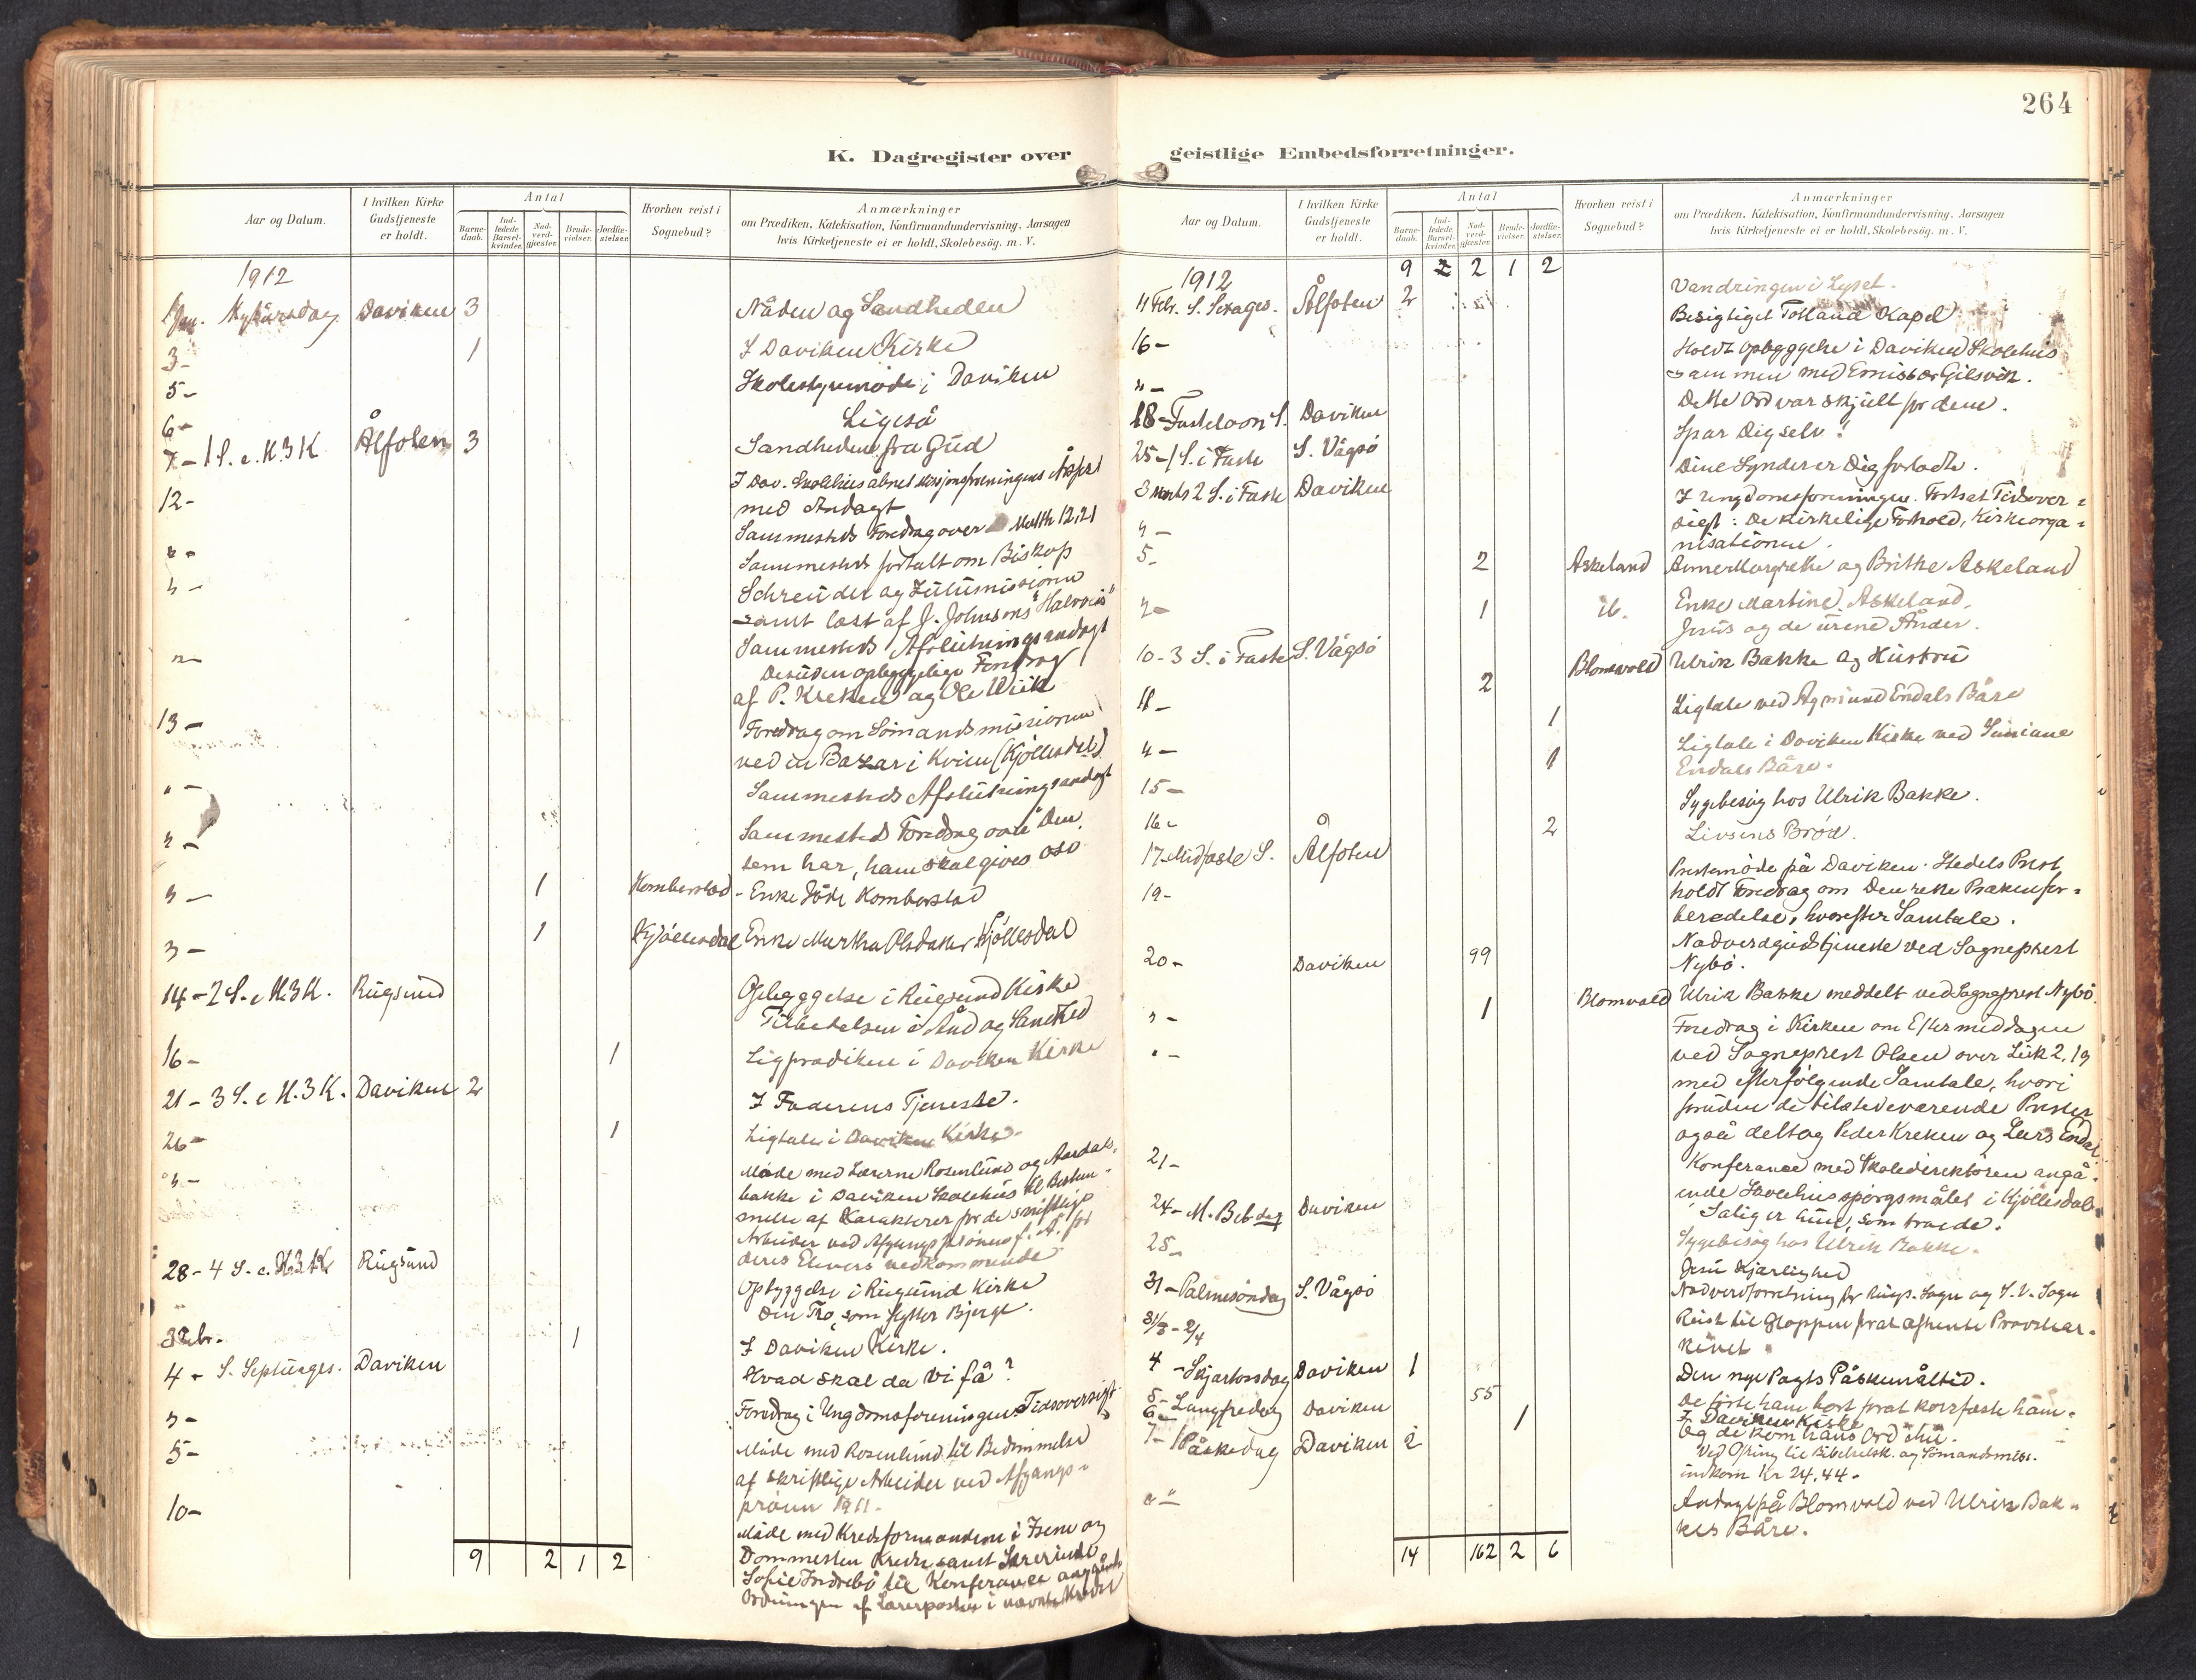 264
K. Dagregister over geistlige Embedsforretninger.
Aar og Datum.
I hvilken Kirke Gudstjeneste er holdt.
Antal
Barne-daab.
Ind-ledede Barsel-kvinder.
Nad-verd-gjæster.
Brude-vielser.
Jordfæ-stelser.
Hvorhen reist i Sognebud?
Anmærkninger
om Prædiken, Katekisation, Konfirmandundervisning, Aarsagen
hvis Kirketjeneste ei er holdt, Skolebesög, m. V.
1912
Jan. Nytårsdag Daviken 3 Nåden og Sandheden
3- 1 I Daviken Kirke
5- Skolestyremöde i Daviken
6- Ligeså
7- 1 S. e. H3K Ålfoten 3 Sandheden fra Gud
12- I Dav. Skolehus åbnet
med Andagt
Sammesteds Foredrag over Matth 12,21
Sammesteds fortalt om Biskop
Schreuder og Zulumissionen
samt læst af J. Johnsons
Sammesteds Afslutningsandagt
Desuden opbyggelige Foredrag
af P. Kreken og Ole Wiik
13- Foredrag om Sömandsmissionen
ved en Bazar i Kvien (Kjöllesdal)
" - Sammesteds Afslutningsandagt
" - Sammesteds Foredrag over Den
som har, ham skal gives osv
" - 1 Homborstad Enke Hombostad
" - 1 Kjöllesdal Enke Martha Olsdatter Kjöllesdal
14 - 2 S. e H3K. Rugsund Opbyggelse i Rugsund Kirke
Tilbedelsen i Ånd og Sandhed
16- 1 Ligprædiken i Daviken Kirke
21 - 3 S. e H.3K. Daviken 2 I Faderens Tjeneste.
26- 1 Ligtale i Daviken Kirke.
" - Möde med Lærerne Rosenlund og Aardals-
bakke i Daviken Skolehus til Bestem-
melse af Karakterer for de skriftlige
Arbeider ved Afgangspröven f. A. for
deres Elevers vedkommende
28 - 4 S. e. H3K Rugsund Opbyggelse i Rugsund Kirke
Den Tro, som flytter Bjerge.
3 Febr. 1 I Daviken Kirke.
4 - S. Septuages. Daviken Hvad skal da vi få?
" - Foredrag i Ungdomsforeningen. Tidsoversigt
5- Möde med Rosenlund til Bedömmelse
af skriftlige Arbeider ved Afgangs-
pröven 1911.
10- Möde med Kredsformændene i Isene og
Dommesten Kredse samt Lærerinde
Sofie Indrebö til Konferance angående
Ordningen af Lærerposten i nævnte Kredse
9 2 1 2
Aar og Datum.
I hvilken Kirke Gudstjeneste er holdt.
Antal
Barne-daab.
Ind-ledede Barsel-kvinder.
Nad-verd-gjæster.
Brude-vielser.
Jordfæ-stelser.
Hvorhen reist i Sognebud?
Anmærkninger
om Prædiken, Katekisation, Konfirmandundervisning, Aarsagen
hvis Kirketjeneste ei er holdt, Skolebesög, m. V.
1912 9 2 2 1 2
11 Febr. S. Sexages. Ålfoten 2 Vandringen i Lyset.
16- Besigtiget Totland Kapel
" - Holdt Opbyggelse i Daviken Skolehus
sammen med Emissær Gilsvik.
18- Fastelavn S. Daviken Dette Ord var skjult for dem.
25- 1 S. i Faste S. Vågsö Spar Dig selv!
3 Marts 2 S. i Faste Daviken Dine Synder er Dig forladte.
" - I Ungdomsforeningen. Fortsat Tidsover-
sigt: De kirkelige Forhold, Kirkeorga-
nisationen.
5- 2 Askeland Anne Margrethe og Brithe Askeland
" - 1 ib. Enke Martine Askeland.
10- 3 S. i Faste S. Vågsö Jesus og de urene Ånder.
2 Blomvold Ulrik Bakke og Hustru
11- 1 Ligtale ved Agmund Endals Båre
" - 1 Ligtale i Daviken Kirke ved
Endals Båre.
15- Sygebesög hos Ulrik Bakke.
16- 2
17- Midfaste S. Ålfoten Livsens Bröd.
19- Prestemöde på Daviken. Stedets Prest
holdt Foredrag om Den rette Prækenfor-
beredelse, hvorefter Samtale.
20- Daviken 99 Nadverdgudstjeneste ved Sogneprest
Nybö.
" - 1 Blomvold Ulrik Bakke meddelt ved Sogneprest Nybö.
" - Foredrag i Kirken om Eftermiddagen
ved Sogneprest Olsen over Luk 2,19
med efterfölgende Samtale, hvori
foruden de tilstedeværende Prester
også deltog Peder Kreken og Lars Endal
21- Konferance med Skoledirektören angå-
ende Skolehusspörgsmålet i Kjöllesdal
24- M. Beb.dag Daviken Salig er hun, som troede.
25- Sygebesög hos Ulrik Bakke.
31- Palmesöndag S. Vågsö Jesu Kjærlighed
Nadverdforretning for Rugs. Sogn og S.V. Sogn
31/3 - 2/4 Reist til Gloppen for at afhente Provstiar-
kivet
4 - Skjærtorsdag Daviken 1 Den nye Pagts Påskemåltid.
5- Langfredag Daviken 55 De förte ham bort for at korsfæste ham.
6- 1 I Daviken Kirke
7- 1 Påskedag Daviken 2 Og de kom hans Ord ihu.
Ved Ofring til Bibelselsk. og Sömandsmiss.
indkom Kr 24,44.
" - Andagt på Blomvold ved Ulrik Bak-
kes Båre.
14 162 2 6